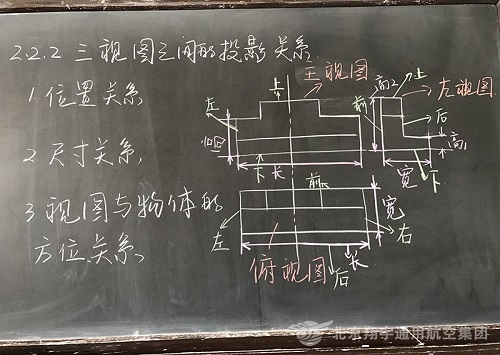 2.2.2 三视图之间的投影关系
1 位置关系
2 尺寸关系
3 视图与物体的
方位关系
主视图
上
左
高
下 长
高2 上
左视图
前
后
高1
宽
下
前
宽
左
右
俯视图
后
长
北京翔宇通用航空集团